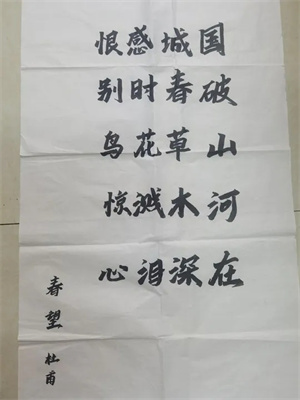 国破山河在
城春草木深
感时花溅泪
恨别鸟惊心
春望 杜甫